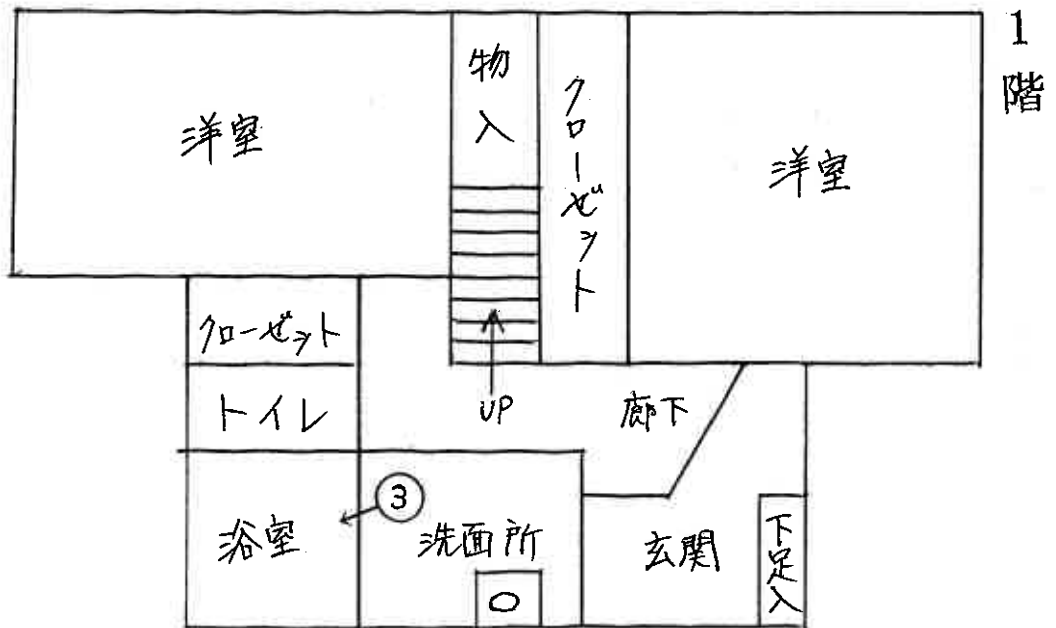 1階
洋室
物入
クローゼット
洋室
クローゼット
トイレ
UP
廊下
浴室
③
洗面所
玄関
下足入